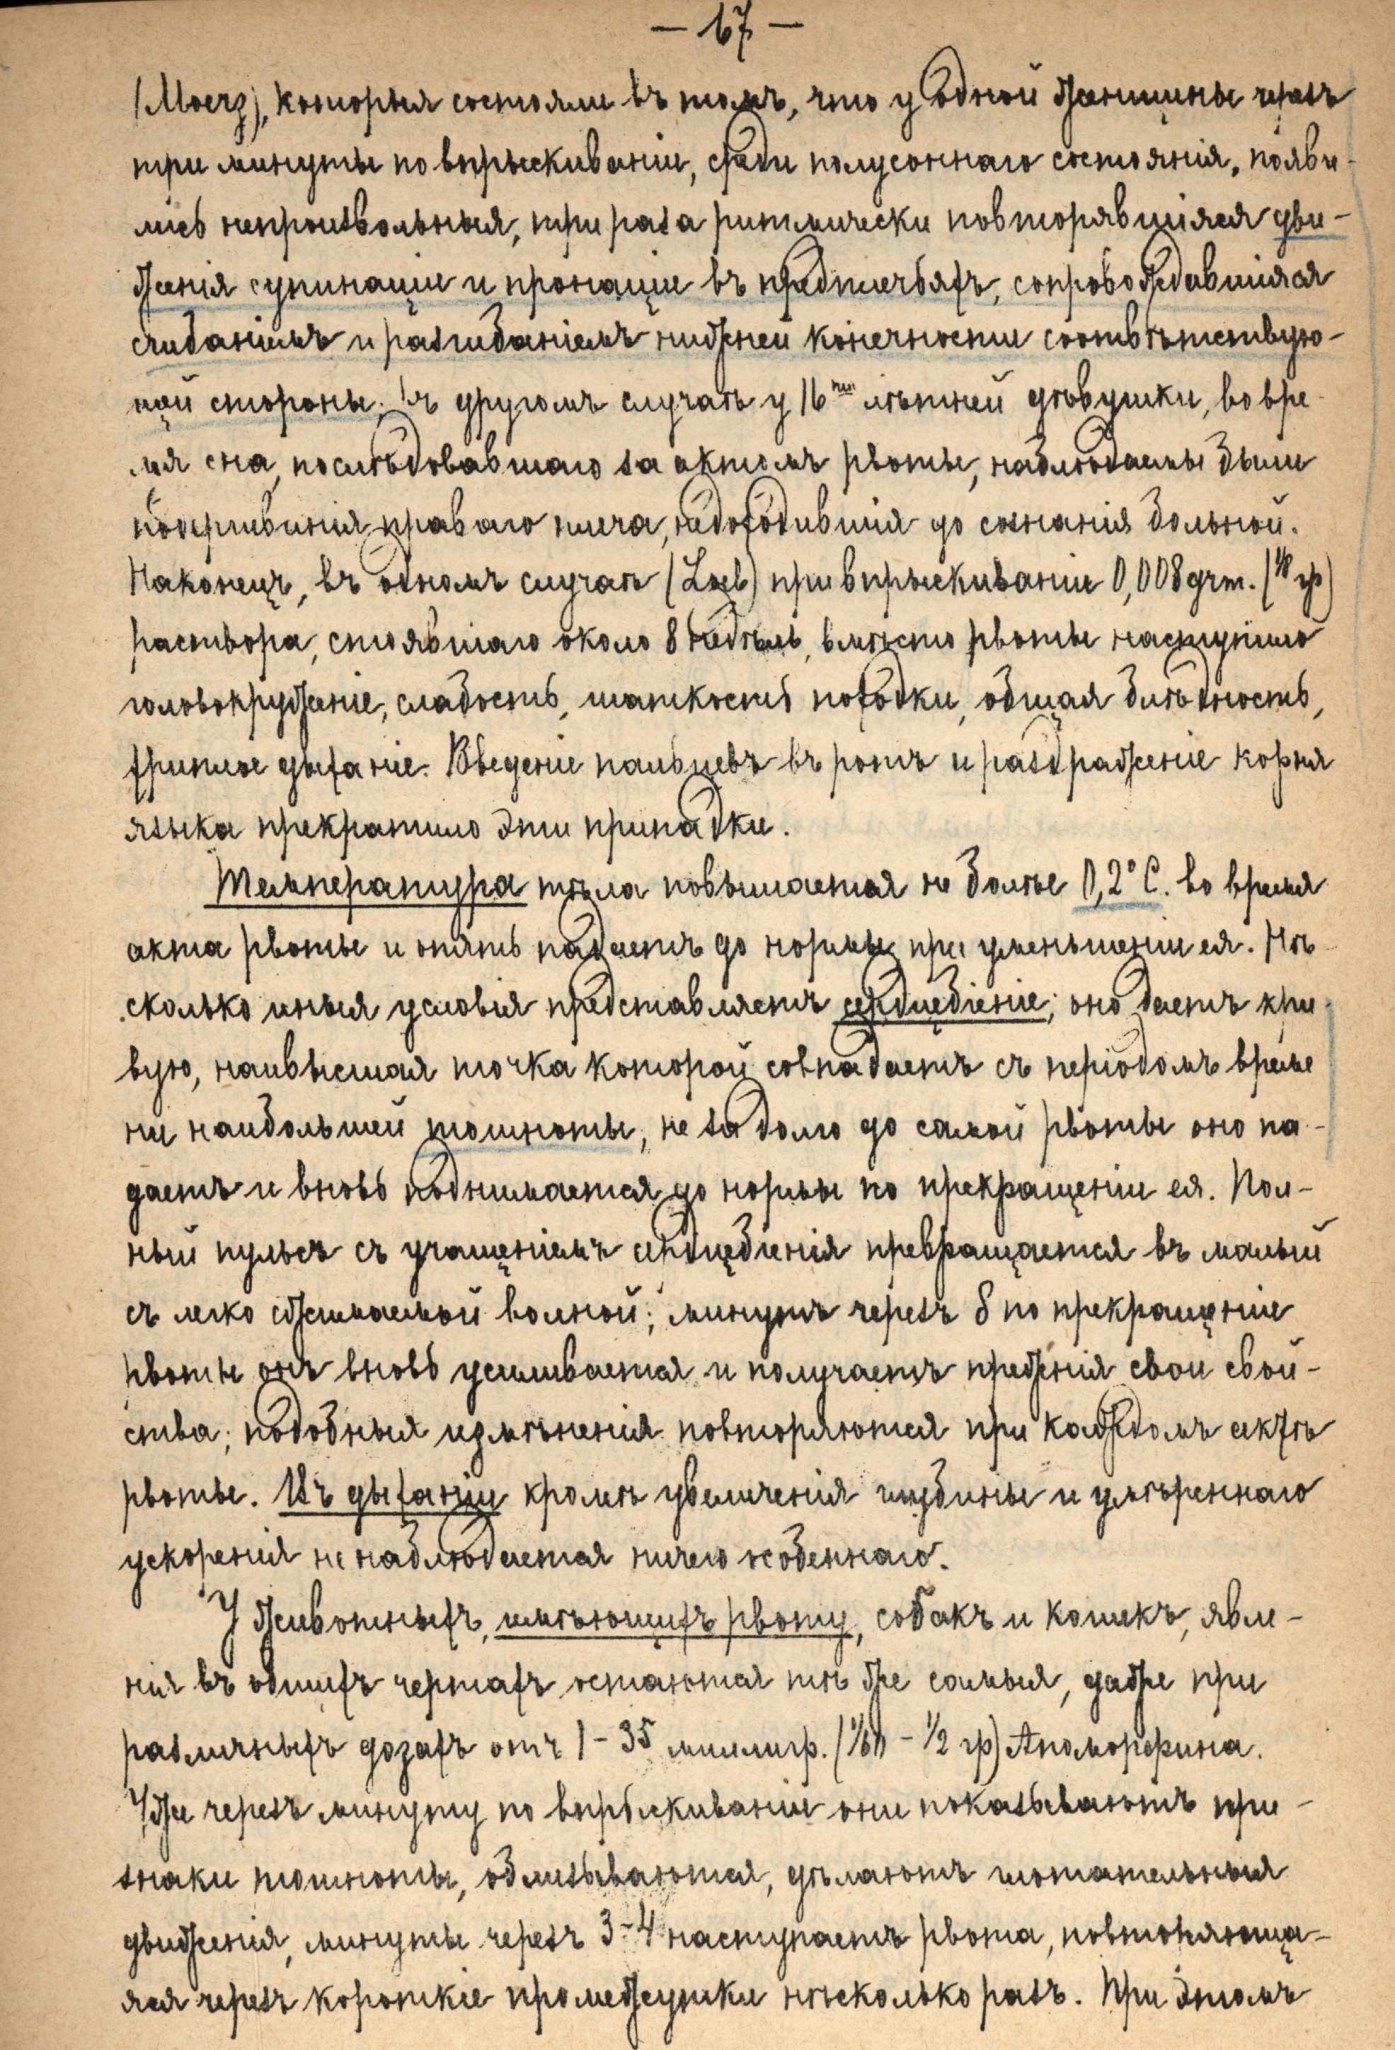 — 67 —
(Moerz), которыя состояли въ томъ, что у одной женщины черезъ
три минуты по впрыскиваніи, среди полусоннаго состоянія, появи-
лись непроизвольныя, три раза ритмически повторявшіяся дви-
женія супинаціи и пронаціи въ предплечьяхъ, сопровождавшіяся
сгибаніемъ и разгибаніемъ нижней конечности соотвѣтствую-
щей стороны. Въ другомъ случаѣ у 16ти лѣтней дѣвушки, во вре-
мя сна, послѣдовавшаго за актомъ рвоты, наблюдаемы были
подергиванія праваго плеча, недоходившія до сознанія больной.
Наконецъ, въ одномъ случаѣ (Loeb) при впрыскиваніи 0,008 grm. (1/8 гр)
раствора, стоявшаго около 8 недѣль, вмѣсто рвоты наступило
головокруженіе, слабость, шаткость походки, общая блѣдность,
хриплое дыханіе. Введеніе пальцевъ въ ротъ и раздраженіе корня
языка прекратило эти припадки.
Температура тѣла повышается не болѣе 0,2° C. во время
акта рвоты и опять падаетъ до нормы при уменьшеніи ея. Нѣ
сколько иныя условія представляетъ сердцебіеніе; оно даетъ кри-
вую, наивысшая точка которой совпадаетъ съ періодомъ време
ни наибольшей тошноты, не задолго до самой рвоты оно па-
даетъ и вновь поднимается до нормы по прекращеніи ея. Пол-
ный пульсъ съ учащеніемъ сердцебіенія превращается въ малый
съ легко сжимаемой волной; минутъ черезъ 8 по прекращеніе
рвоты онъ вновь усиливается и получаетъ прежнія свои свой-
ства; подобныя измѣненія повторяются при каждомъ актѣ
рвоты. Въ дыханіи кромѣ увеличенія глубины и умѣреннаго
ускоренія не наблюдается ничего особеннаго.
У животныхъ, имѣющихъ рвоту, собакъ и кошекъ, явле-
нія въ общихъ чертахъ остаются тѣ же самыя, даже при
различныхъ дозахъ отъ 1 – 35 миллигр. (1/60 – 1/2 гр) Апоморфина.
Уже черезъ минуту по впрыскиваніи они показываютъ при-
знаки тошноты, облизываются, дѣлаютъ глотательныя
движенія, минуты черезъ 3–4 наступаетъ рвота, повторяюща-
яся черезъ короткіе промежутки нѣсколько разъ. При этомъ